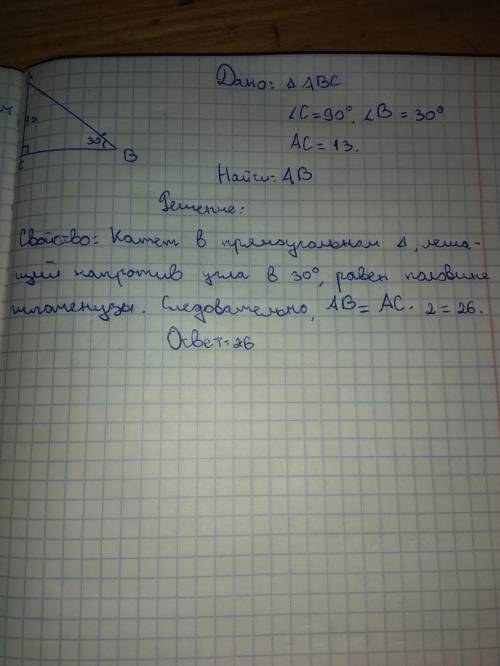 Дано: Δ ABC
∠C = 90°, ∠B = 30°
AC = 13.
Найти: AB
A
30°
C
B
Решение:
Свойство: Катет в прямоугольном Δ, лежа-
щий напротив угла в 30°, равен половине
гипотенузы. Следовательно, AB = AC · 2 = 26.
Ответ: 26